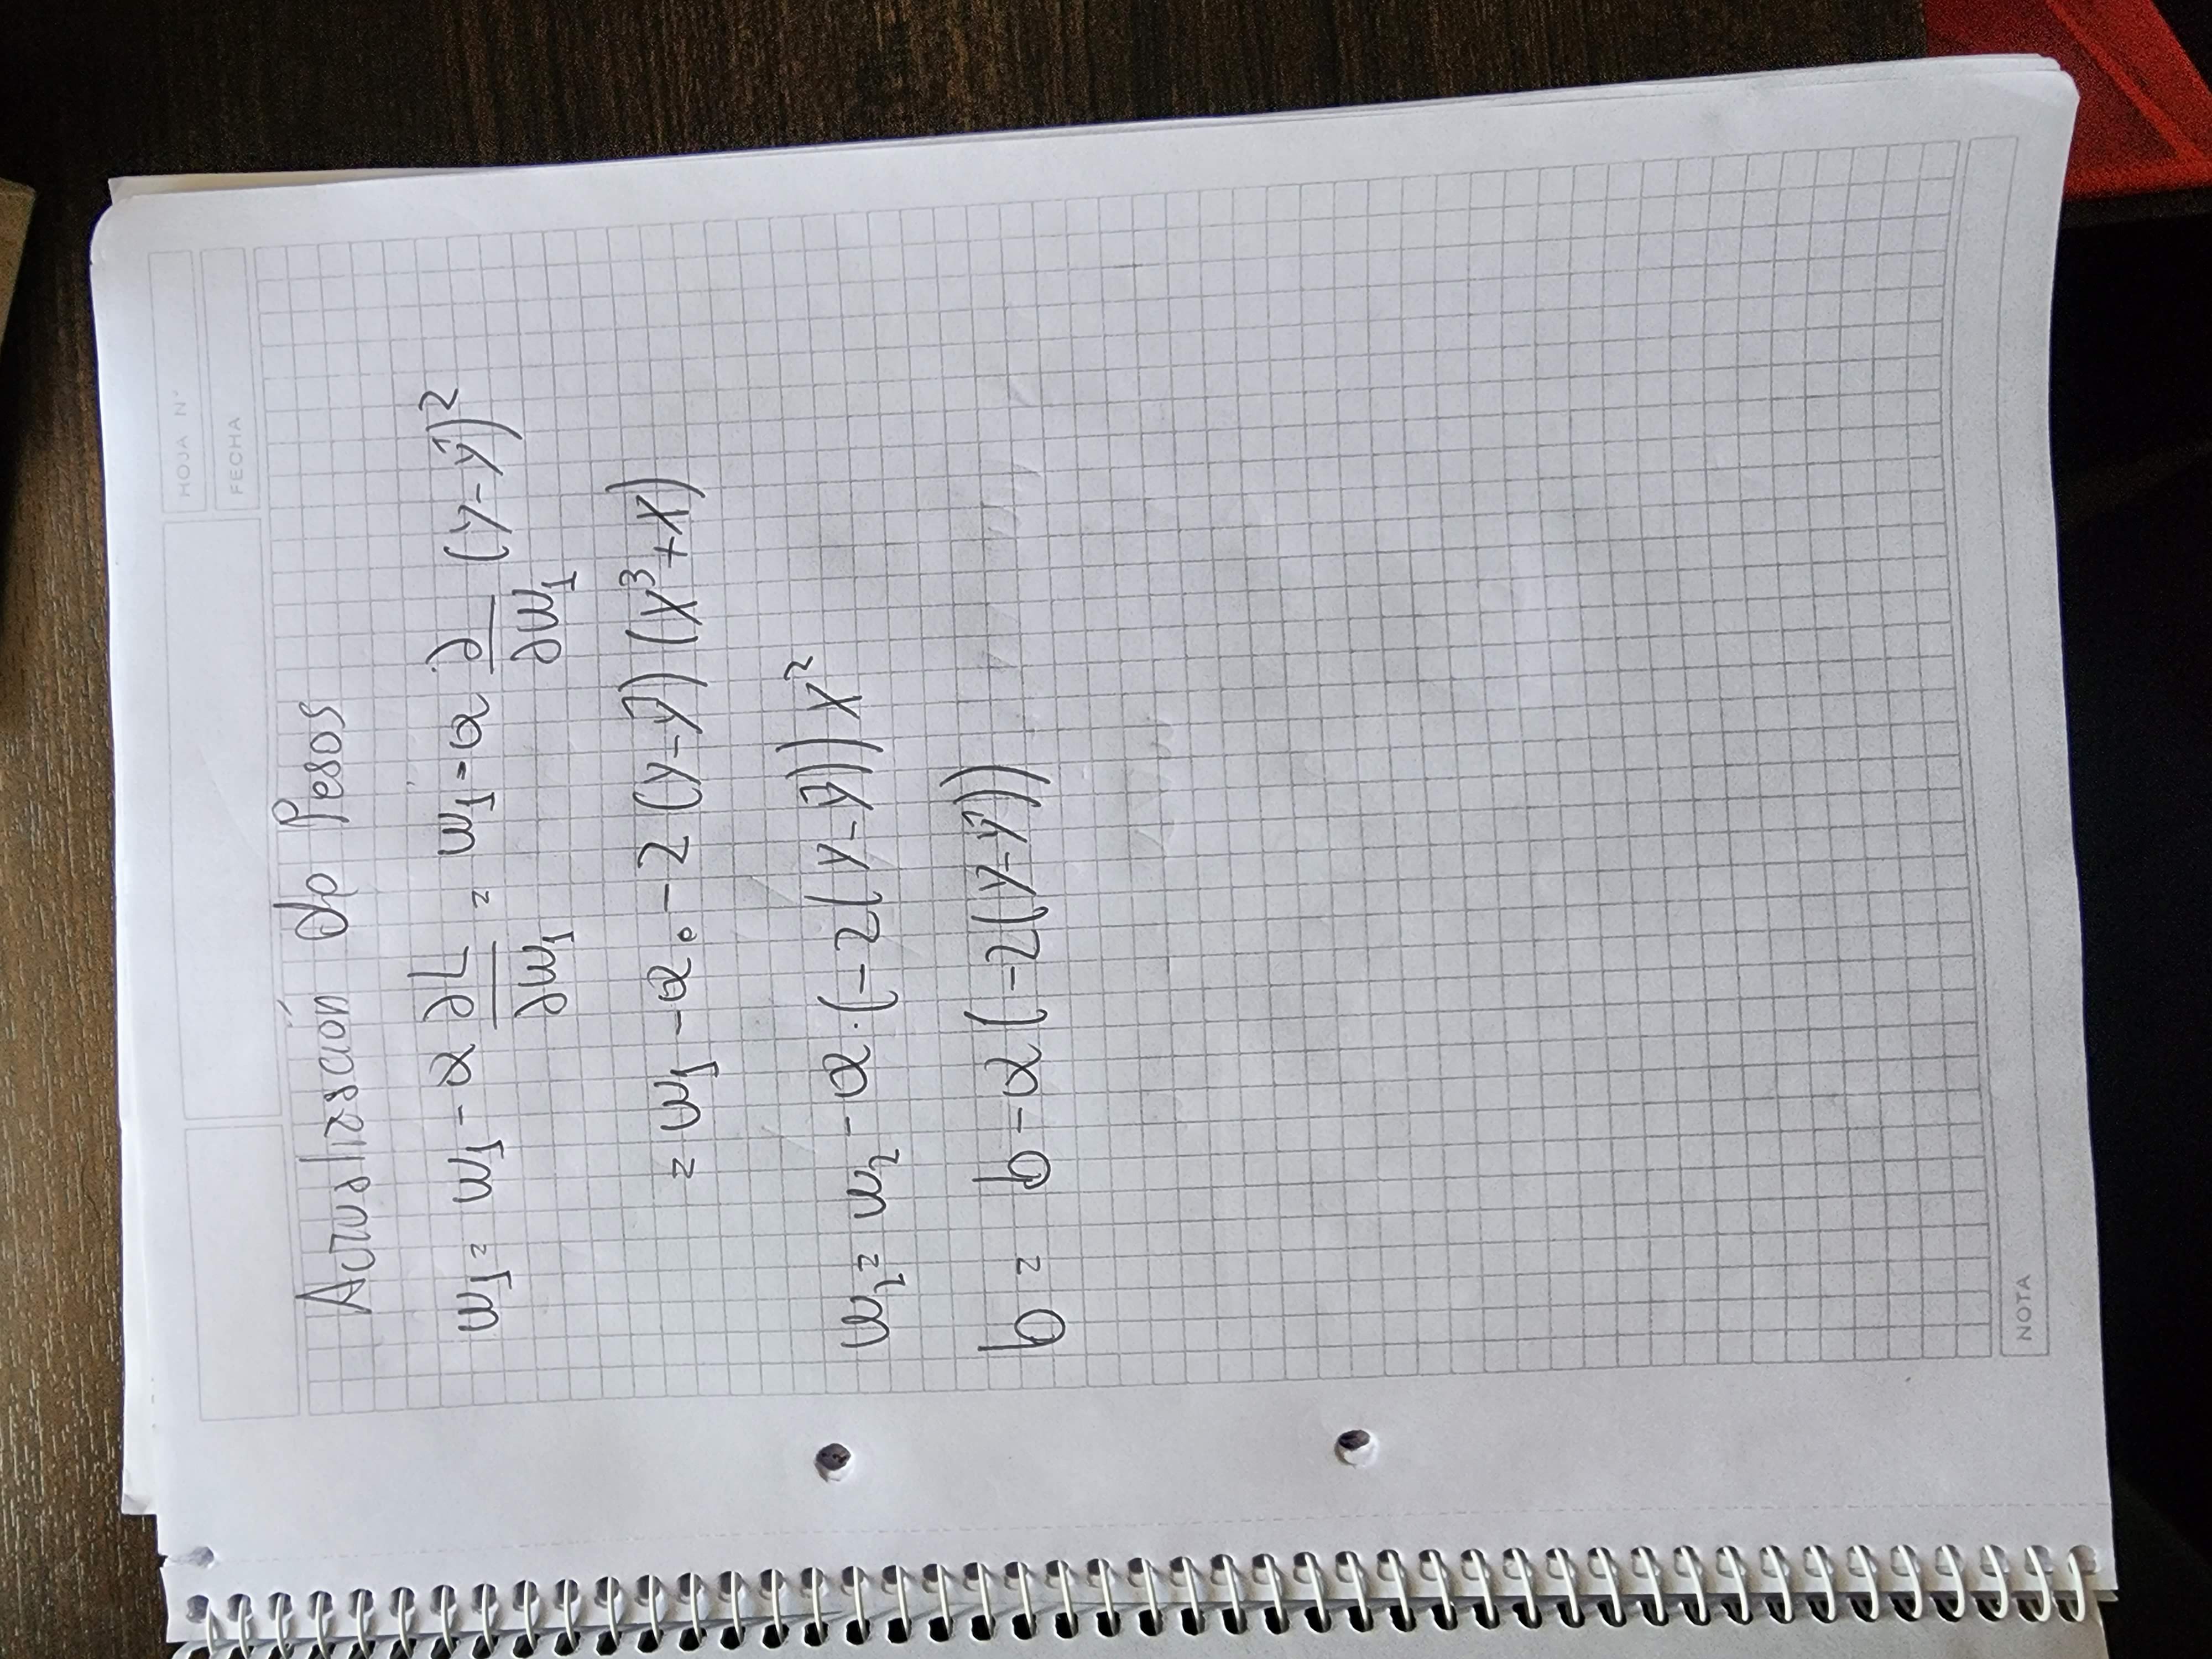 HOJA Nº
FECHA
Actualización de Pesos
w₁ = w₁ - α ∂L/∂w₁ = w₁ - α ∂/∂w₁ (y - ŷ)²
= w₁ - α · -2 (y - ŷ) (x³ + x)
w₂ = w₂ - α · (-2(y - ŷ)) x²
b = b - α (-2(y - ŷ))
NOTA